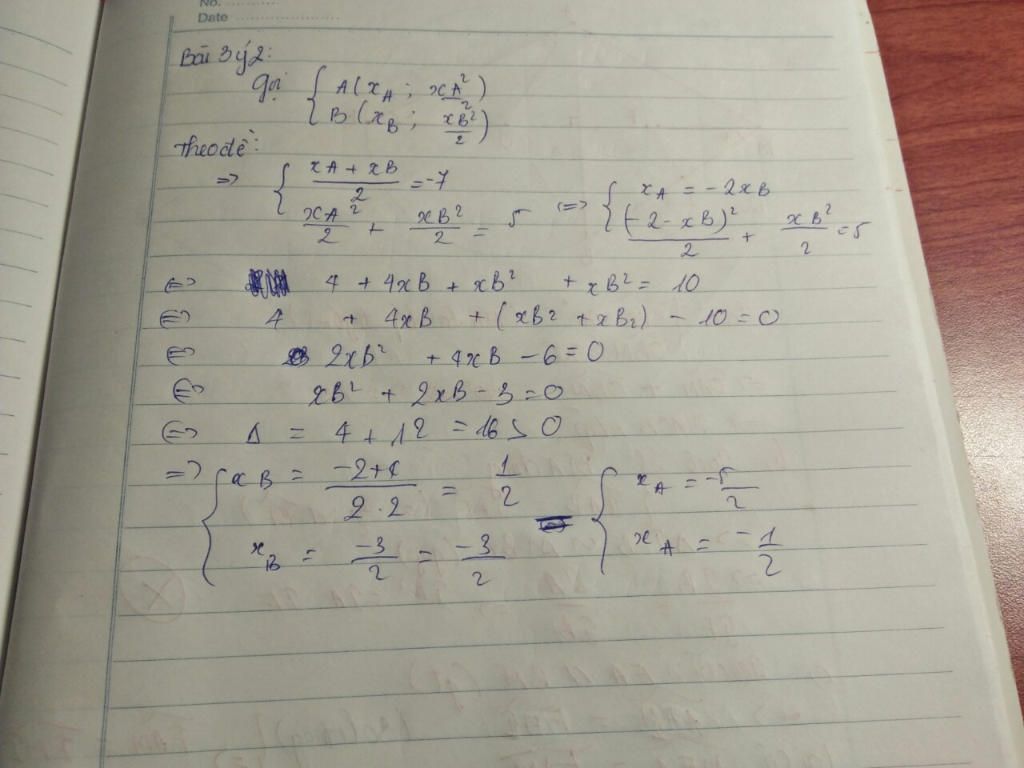 No. ............
Date ........................
Bài 3 ý 2:
Gọi { A(x_A ; xA²/2)
B(x_B ; xB²/2)
theo đề:
=> { (xA + xB)/2 = -7 <=> { x_A = -2xB
xA²/2 + xB²/2 = 5 (-2 - xB)²/2 + xB²/2 = 5
<=> 4 + 4xB + xB² + xB² = 10
<=> 4 + 4xB + (xB² + xB²) - 10 = 0
<=> 2xB² + 4xB - 6 = 0
<=> xB² + 2xB - 3 = 0
<=> Δ = 4 + 12 = 16 > 0
=> { xB = (-2+4)/(2.2) = 1/2 { x_A = -5/2
x_B = -3/2 = -3/2 x_A = -1/2